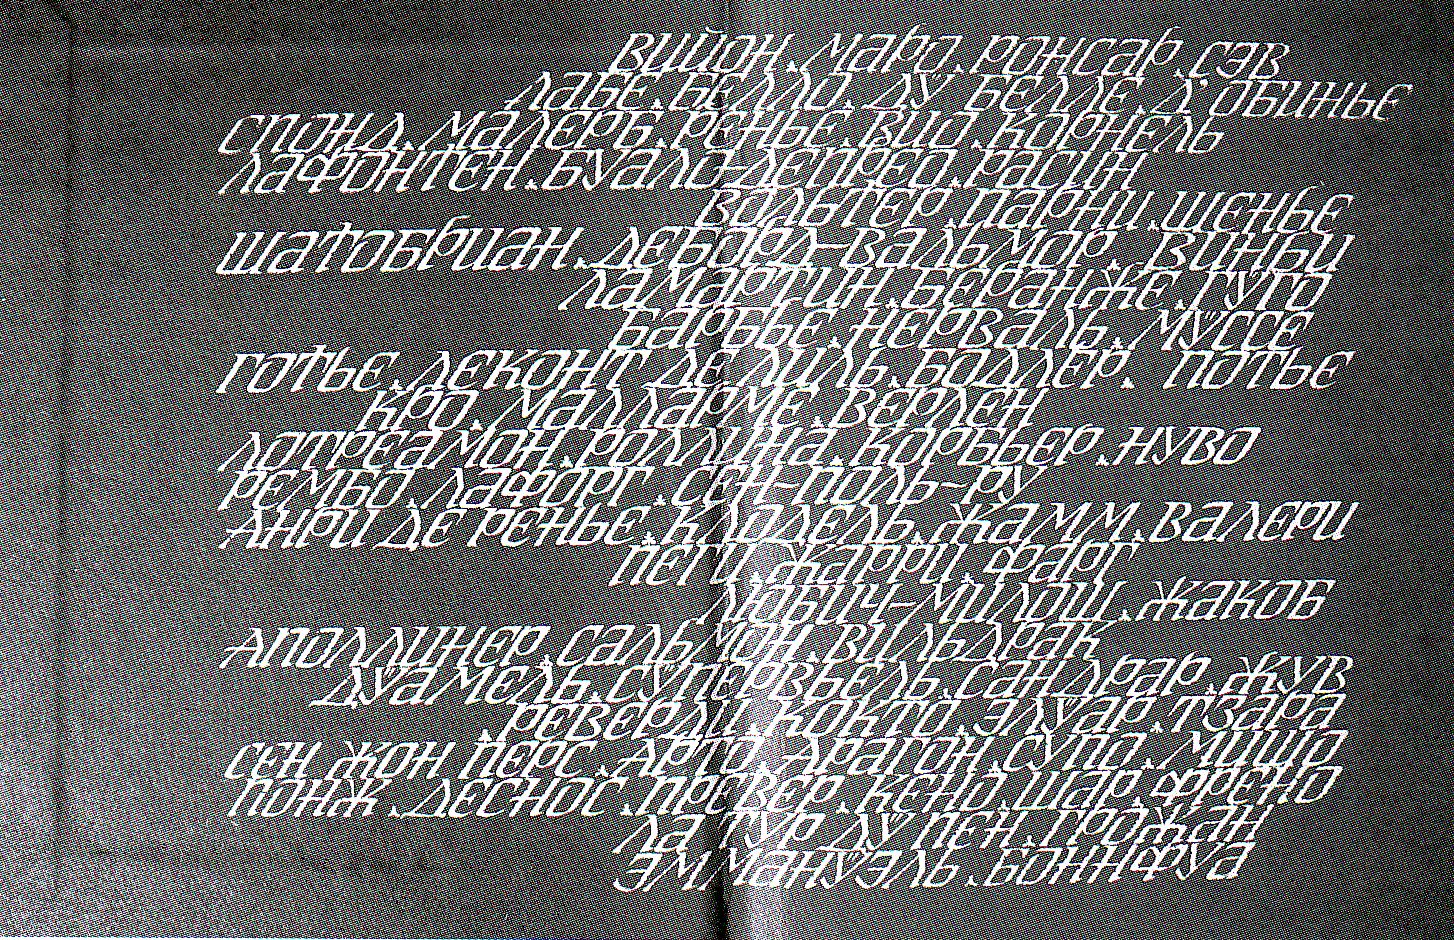 ВИЙОН. МАРО. РОНСАР. СЭВ
ЛАБЕ. БЕЛЛО. ДЮ БЕЛЛЕ. Д'ОБИНЬЕ
СПОНД. МАЛЕРБ. РЕНЬЕ. ВИО. КОРНЕЛЬ
ЛАФОНТЕН. БУАЛО-ДЕПРЕО. РАСИН
ВОЛЬТЕР. ПАРНИ. ШЕНЬЕ
ШАТОБРИАН. ДЕБОРД-ВАЛЬМОР. ВИНЬИ
ЛАМАРТИН. БЕРАНЖЕ. ГУГО
БАРБЬЕ. НЕРВАЛЬ. МУССЕ
ГОТЬЕ. ЛЕКОНТ ДЕ ЛИЛЬ. БОДЛЕР. ПОТЬЕ
КРО. МАЛЛАРМЕ. ВЕРЛЕН
ЛОТРЕАМОН. РОЛЛИНА. КОРБЬЕР. НУВО
РЕМБО. ЛАФОРГ. СЕН-ПОЛЬ-РУ
АНРИ ДЕ РЕНЬЕ. КЛОДЕЛЬ. ЖАММ. ВАЛЕРИ
ПЕГИ. ЖАРРИ. ФАРГ
ЛЮБИЧ-МИЛОШ. ЖАКОБ
АПОЛЛИНЕР. САЛЬМОН. ВИЛЬДРАК
ДУАМЕЛЬ. СУПЕРВЬЕЛЬ. САНДРАР. ЖУВ
РЕВЕРДИ. КОКТО. ЭЛУАР. ТЗАРА
СЕН ЖОН ПЕРС. АРТО. АРАГОН. СУПО. МИШО
ПОНЖ. ДЕСНОС. ПРЕВЕР. КЕНО. ШАР. ФРЕНО
ЛА ТУР ДУ ПЕН. ГРОЖАН
ЭММАНУЭЛЬ. БОННФУА